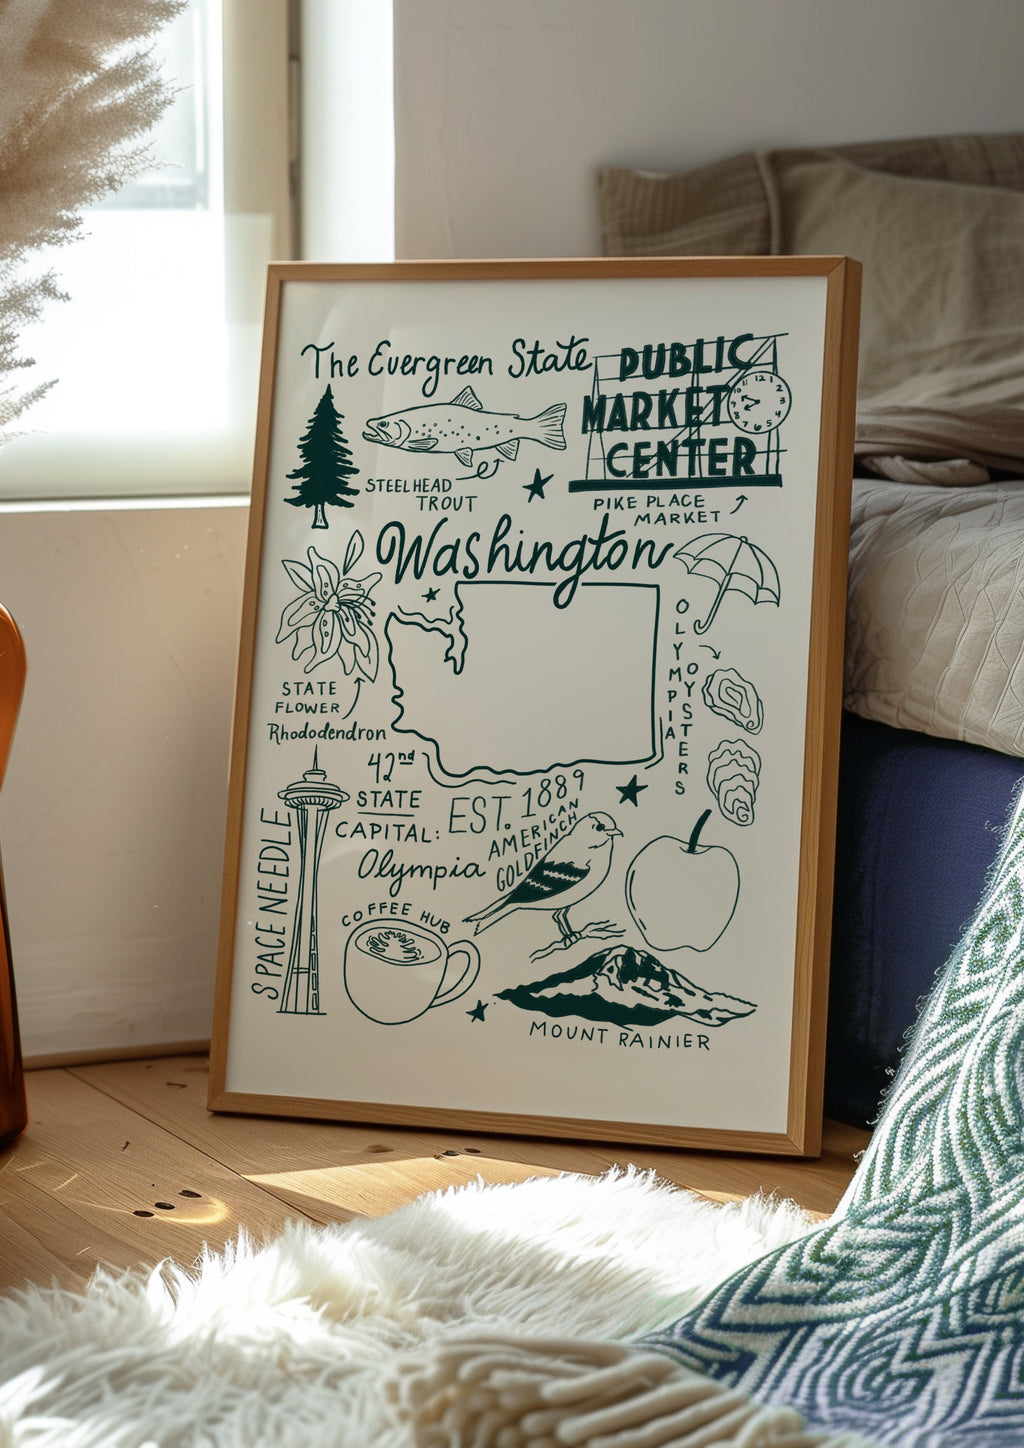 The Evergreen State
PUBLIC
MARKET
CENTER
12 1 2 3 4 5 6 7 8 9 10 11
STEELHEAD
TROUT
PIKE PLACE
MARKET
Washington
OLYMPIA
OYSTERS
STATE
FLOWER
Rhododendron
42nd
STATE
EST. 1889
CAPITAL:
Olympia
AMERICAN
GOLDFINCH
SPACE NEEDLE
COFFEE HUB
MOUNT RAINIER